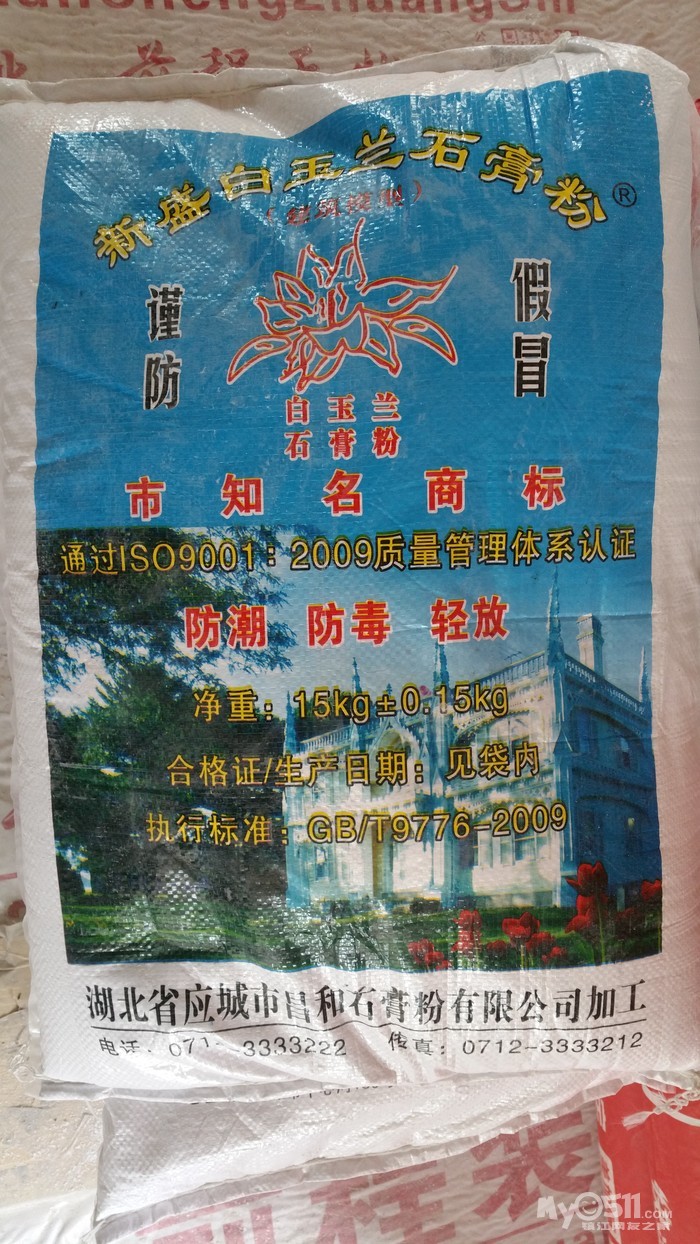 新盛白玉兰石膏粉®
谨防
假冒
白玉兰
石膏粉
市知名商标
通过ISO9001：2009质量管理体系认证
防潮 防毒 轻放
净重：15kg±0.15kg
合格证/生产日期：见袋内
执行标准：GB/T9776-2009
湖北省应城市昌和石膏粉有限公司加工
电话：071 -3333222 传真：0712-3333212
My0511.com
镇江网友之家